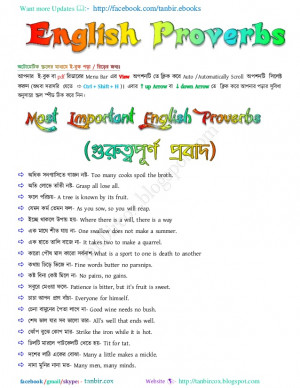 Want more Updates http://facebook.com/tanbir.ebooks
English Proverbs
Most Important English Proverbs
(গুরুত্বপূর্ণ প্রবাদ)
অধিক সন্ন্যাসিতে গাজন নষ্ট- Too many cooks spoil the broth.
অতি লোভে তাঁতী নষ্ট- Grasp all lose all.
ফলে পরিচয়- A tree is known by its fruit.
যেমন কর্ম তেমন ফল- As you sow, so will you reap.
ইচ্ছা থাকলে উপায় হয়- Where there is a will, there is a way
এক মাঘে শীত যায় না- One swallow does not make a summer.
এক হাতে তালি বাজে না- It takes two to make a quarrel.
কারো পৌষ মাস কারো সর্বনাশ What is a sport to one is death to another
কথায় চিড়ে ভিজে না- Fine words butter no parsnips.
কষ্ট বিনা কেষ্ট মিলে না- No pains, no gains.
সবুরে মেওয়া ফলে- Patience is bitter, but it's fruit is sweet.
চাচা আপন প্রাণ বাঁচা- Everyone for himself.
চেনা বামুনের পৈতা লাগে না- Good wine needs no bush.
শেষ ভাল যার সব ভালো তার- All's well that ends well.
ঝোঁপ বুঝে কোপ মার- Strike the iron while it is hot.
ঢিলটি মারলে পাটকেলটি খেতে হয়- Tit for tat.
দশের লাঠি একের বোঝা- Many a little makes a mickle.
নানা মুনির নানা মত- Many men, many minds.
facebook /gmail/skype:- tanbir.cox Website http://tanbircox.blogspot.com